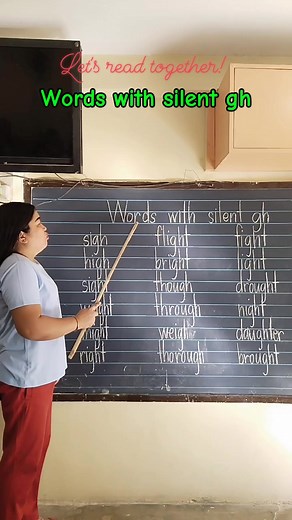 Let's read together!
Words with silent gh
Words with silent gh
sigh flight fight
high bright light
sight though drought
through night
weigh daughter
right thorough brought